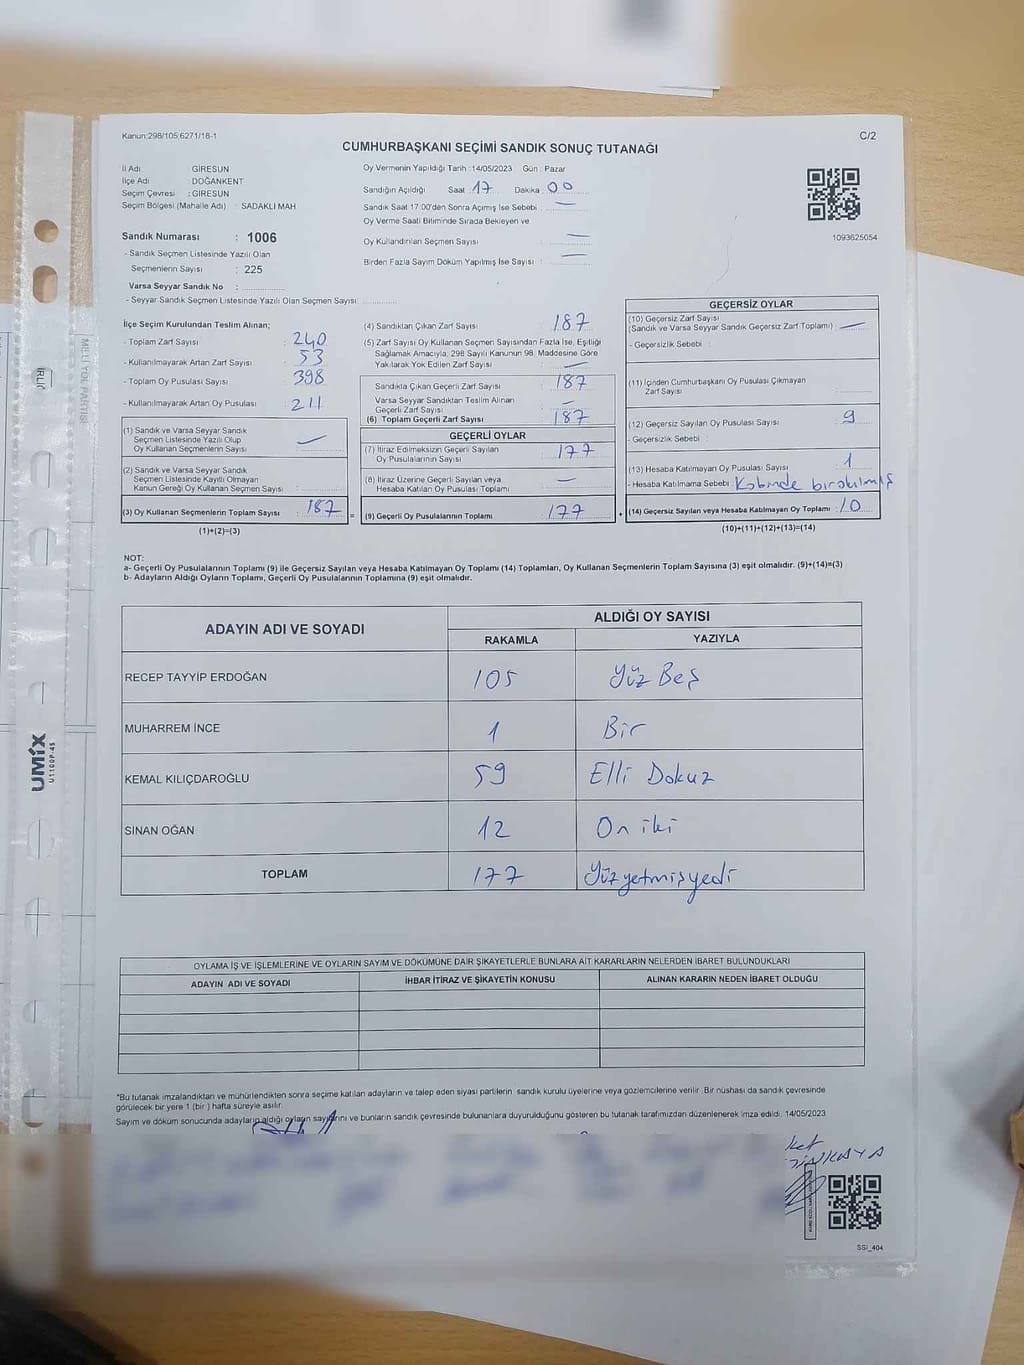 Kanun:298/105;6271/18-1
C/2
CUMHURBAŞKANI SEÇİMİ SANDIK SONUÇ TUTANAĞI
İl Adı GİRESUN
İlçe Adı : DOĞANKENT
Seçim Çevresi : GİRESUN
Seçim Bölgesi (Mahalle Adı) : SADAKLI MAH
Sandık Numarası : 1006
- Sandık Seçmen Listesinde Yazılı Olan
Seçmenlerin Sayısı : 225
Varsa Seyyar Sandık No :
- Seyyar Sandık Seçmen Listesinde Yazılı Olan Seçmen Sayısı
Oy Vermenin Yapıldığı Tarih : 14/05/2023 Gün : Pazar
Sandığın Açıldığı Saat : 17 Dakika : 00
Sandık Saat 17:00'den Sonra Açımış İse Sebebi : —
Oy Verme Saati Bitiminde Sırada Bekleyen ve
Oy Kullandırılan Seçmen Sayısı : —
Birden Fazla Sayım Döküm Yapılmış İse Sayısı : —
1093625054
İlçe Seçim Kurulundan Teslim Alınan;
- Toplam Zarf Sayısı : 240
- Kullanılmayarak Artan Zarf Sayısı : 53
- Toplam Oy Pusulası Sayısı : 398
- Kullanılmayarak Artan Oy Pusulası : 211
(1) Sandık ve Varsa Seyyar Sandık
Seçmen Listesinde Yazılı Olup
Oy Kullanan Seçmenlerin Sayısı : —
(2) Sandık ve Varsa Seyyar Sandık
Seçmen Listesinde Kayıtlı Olmayan
Kanun Gereği Oy Kullanan Seçmen Sayısı :
(3) Oy Kullanan Seçmenlerin Toplam Sayısı : 187
(1)+(2)=(3)
(4) Sandıktan Çıkan Zarf Sayısı : 187
(5) Zarf Sayısı Oy Kullanan Seçmen Sayısından Fazla İse, Eşitliği
Sağlamak Amacıyla; 298 Sayılı Kanunun 98. Maddesine Göre
Yakılarak Yok Edilen Zarf Sayısı : —
Sandıkta Çıkan Geçerli Zarf Sayısı : 187
Varsa Seyyar Sandıktan Teslim Alınan
Geçerli Zarf Sayısı : —
(6) Toplam Geçerli Zarf Sayısı : 187
GEÇERLİ OYLAR
(7) İtiraz Edilmeksizin Geçerli Sayılan
Oy Pusulalarının Sayısı : 177
(8) İtiraz Üzerine Geçerli Sayılan veya
Hesaba Katılan Oy Pusulası Toplamı : —
(9) Geçerli Oy Pusulalarının Toplamı : 177
GEÇERSİZ OYLAR
(10) Geçersiz Zarf Sayısı
(Sandık ve Varsa Seyyar Sandık Geçersiz Zarf Toplamı) : —
- Geçersizlik Sebebi :
(11) İçinden Cumhurbaşkanı Oy Pusulası Çıkmayan
Zarf Sayısı :
(12) Geçersiz Sayılan Oy Pusulası Sayısı : 9
- Geçersizlik Sebebi :
(13) Hesaba Katılmayan Oy Pusulası Sayısı : 1
- Hesaba Katılmama Sebebi : Kabinde bırakılmış
(14) Geçersiz Sayılan veya Hesaba Katılmayan Oy Toplamı : 10
(10)+(11)+(12)+(13)=(14)
NOT:
a- Geçerli Oy Pusulalarının Toplamı (9) ile Geçersiz Sayılan veya Hesaba Katılmayan Oy Toplamı (14) Toplamları, Oy Kullanan Seçmenlerin Toplam Sayısına (3) eşit olmalıdır. (9)+(14)=(3)
b- Adayların Aldığı Oyların Toplamı, Geçerli Oy Pusulalarının Toplamına (9) eşit olmalıdır.
ADAYIN ADI VE SOYADI ALDIĞI OY SAYISI
RAKAMLA YAZIYLA
RECEP TAYYİP ERDOĞAN 105 Yüz Beş
MUHARREM İNCE 1 Bir
KEMAL KILIÇDAROĞLU 59 Elli Dokuz
SİNAN OĞAN 12 On iki
TOPLAM 177 Yüzyetmişyedi
OYLAMA İŞ VE İŞLEMLERİNE VE OYLARIN SAYIM VE DÖKÜMÜNE DAİR ŞİKAYETLERLE BUNLARA AİT KARARLARIN NELERDEN İBARET BULUNDUKLARI
ADAYIN ADI VE SOYADI İHBAR İTİRAZ VE ŞİKAYETİN KONUSU ALINAN KARARIN NEDEN İBARET OLDUĞU
*Bu tutanak imzalandıktan ve mühürlendikten sonra seçime katılan adayların ve talep eden siyasi partilerin sandık kurulu üyelerine veya gözlemcilerine verilir. Bir nüshası da sandık çevresinde
görülecek bir yere 1 (bir) hafta süreyle asılır.
Sayım ve döküm sonucunda adayların aldığı oyların sayılarını ve bunların sandık çevresinde bulunanlara duyurulduğunu gösteren bu tutanak tarafımızdan düzenlenerek imza edildi. 14/05/2023
SSI_404
UMIX
U1100P-45
MİLLİ YOL PARTİSİ